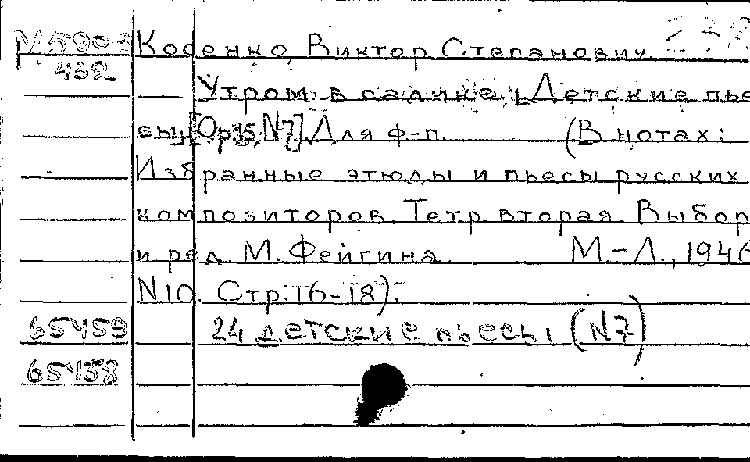 Косенко, Виктор Степанович
432
Утром в садике. Детские пье
сы, [Op.15, N7] Для ф-п. (В нотах:
Избранные этюды и пьесы русских
композиторов. Тетр. вторая. Выбор
и ред. М. Фейгина. М.-Л., 1946
N10. Стр. 16-18).
65459 24 детские пьесы (N7)
65458